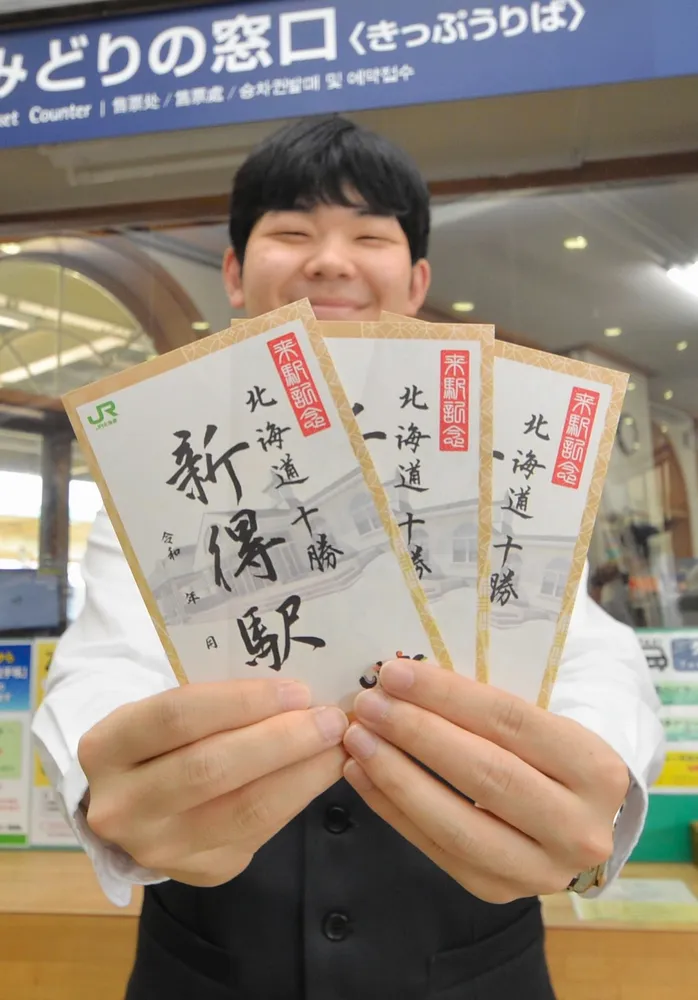 みどりの窓口〈きっぷうりば〉
Counter | 售票处 / 售票處 / 승차권발매 및 예약접수
来駅記念
北海道十勝
新得駅
令和 年 月
JR
来駅記念
北海道十勝
来駅記念
北海道十勝